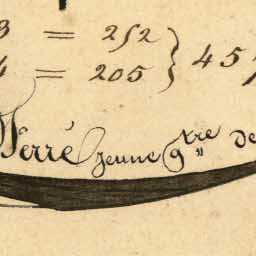 3 = 252
4 = 205 } 457
Verré jeune g.tre de